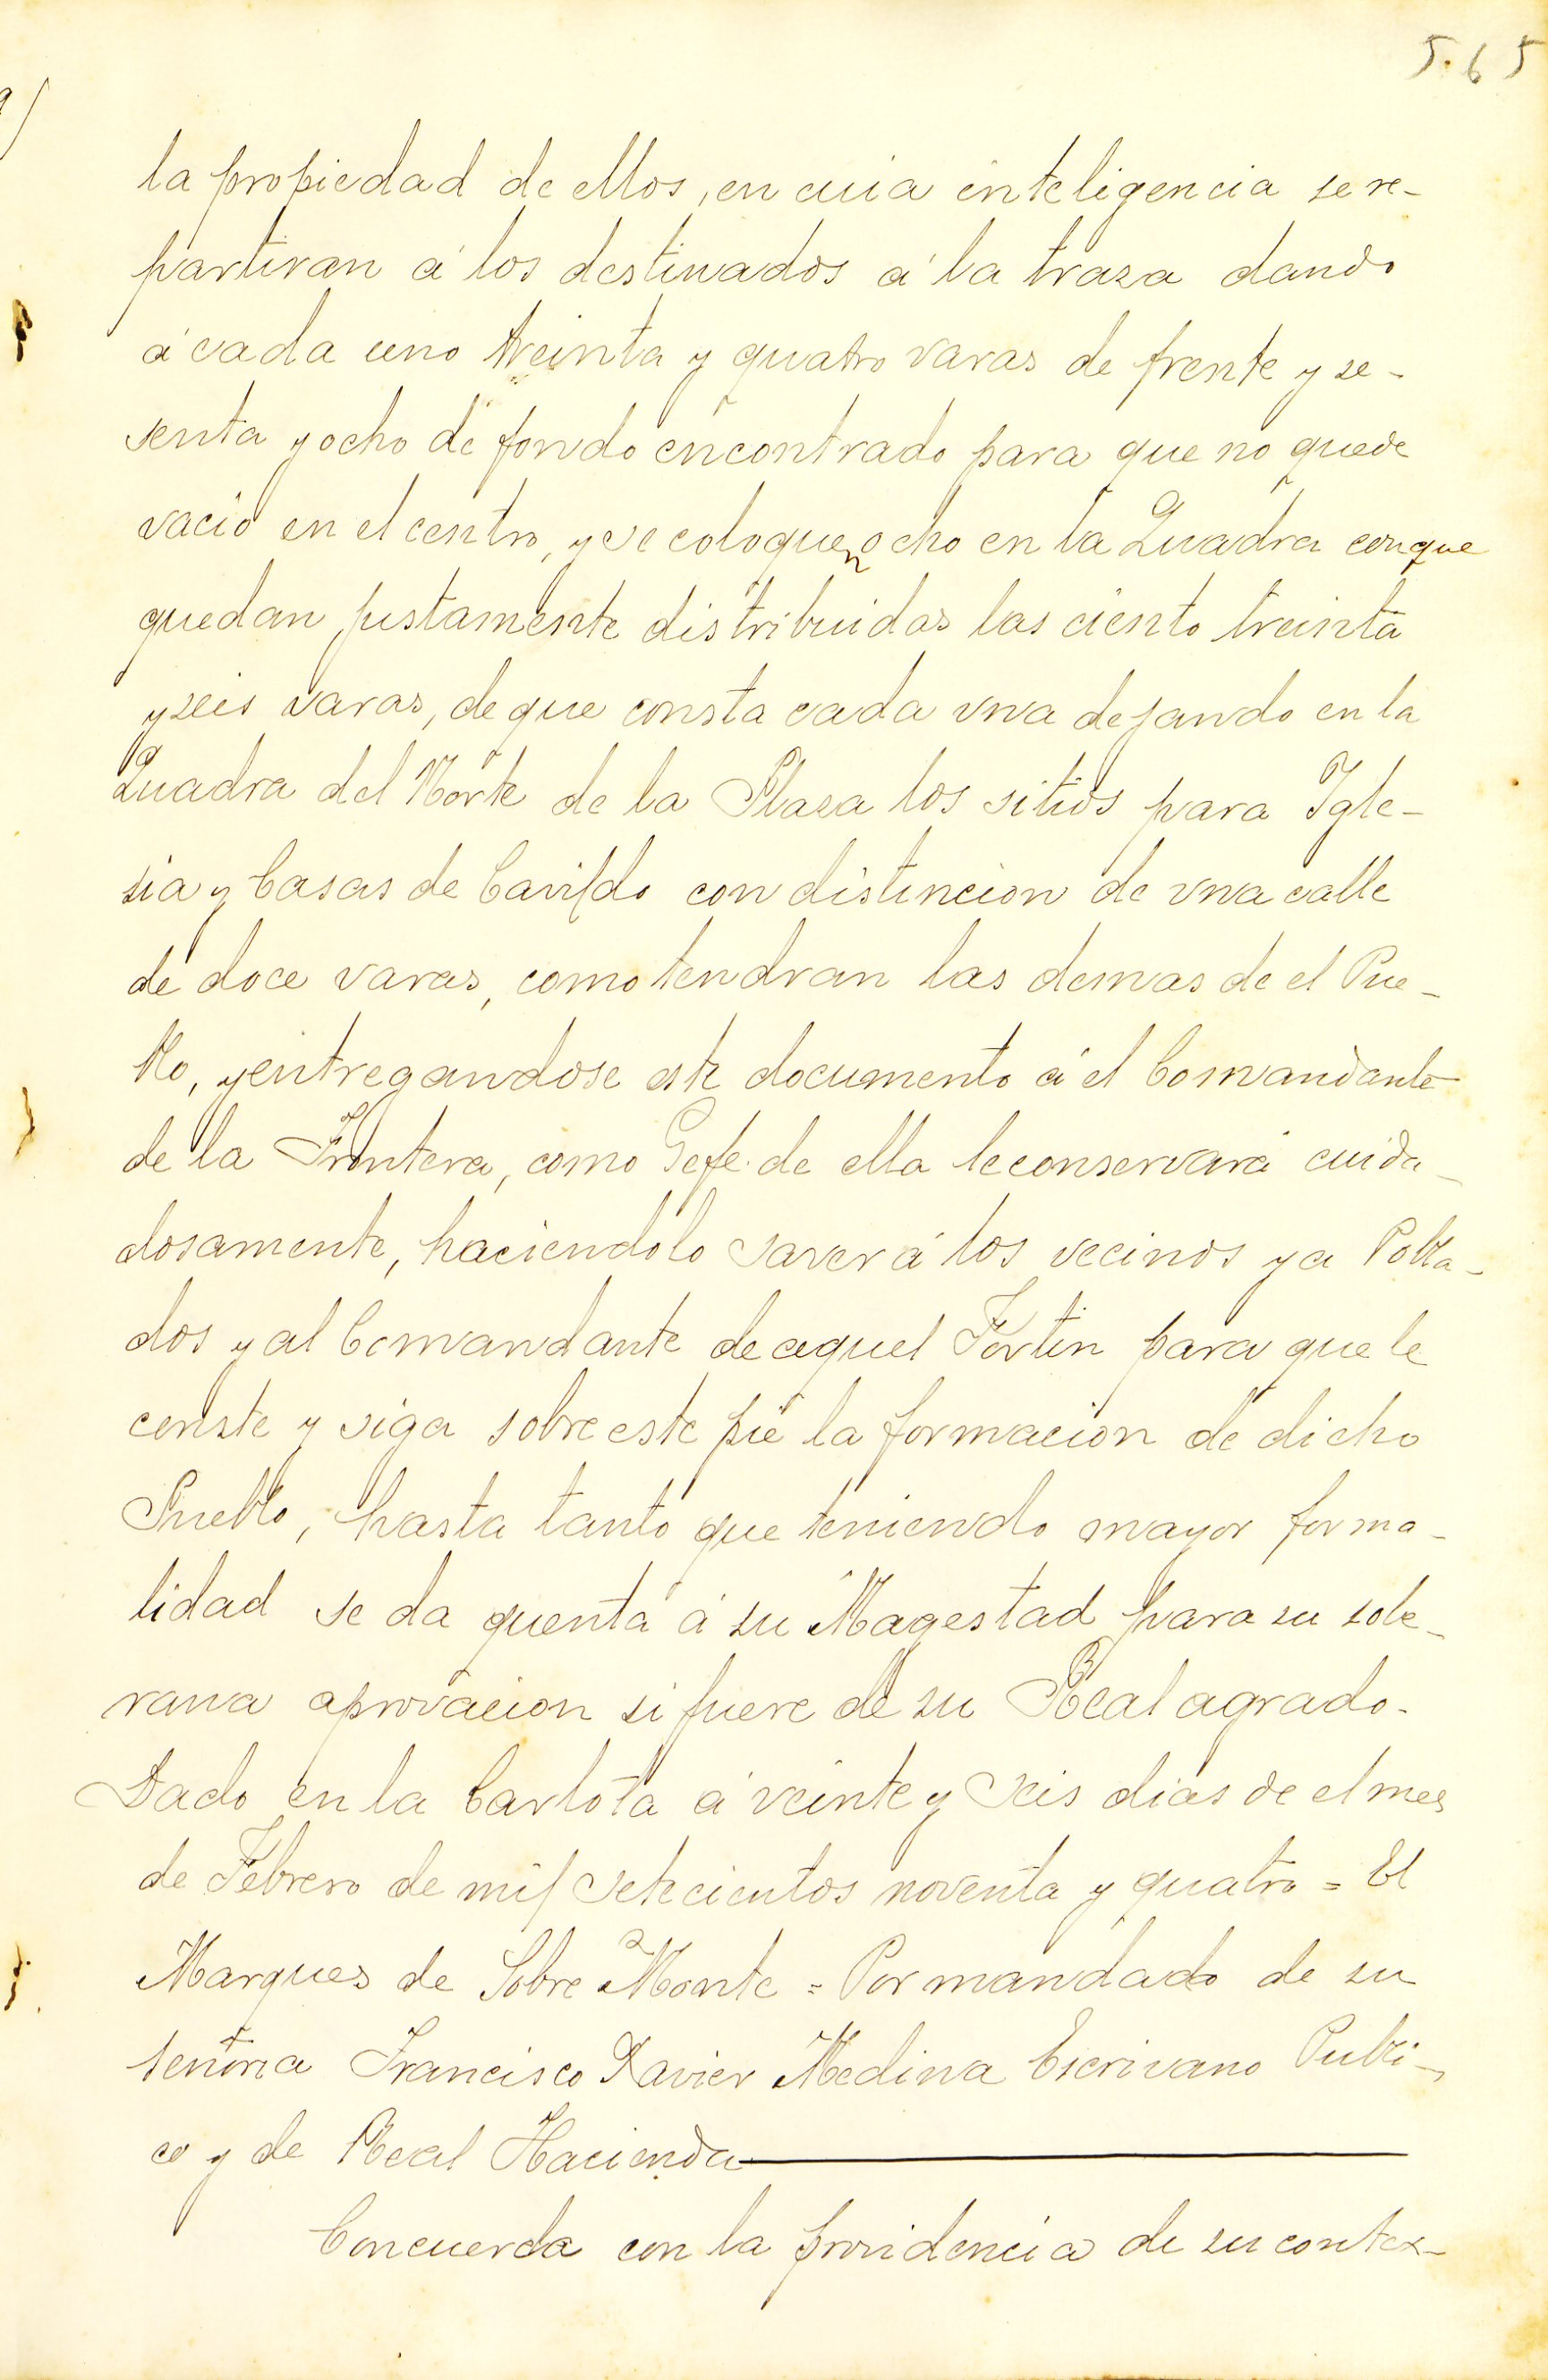 5.65
la propiedad de ellos, en cuia inteligencia se re-
partiran á los destinados á la traza dando
á cada uno treinta y quatro varas de frente y se-
senta y ocho de fondo encontrado para que no quede
vacio en el centro, y se coloquen ocho en la Quadra con que
quedan justamente distribuidas las ciento treinta
y seis varas, de que consta cada vna dejando en la
Quadra del Norte de la Plaza los sitios para Igle-
sia y Casas de Cavildo con distincion de vna calle
de doce varas, como tendran las demas de el Pue-
blo, y entregandose este documento á el Comandante
de la Frontera, como Gefe de ella le conservará cuida-
dosamente, haciendolo saver á los vecinos y a Pobla-
dos y al Comandante de aquel Fortin para que le
conste y siga sobre este pie la formacion de dicho
Pueblo, hasta tanto que teniendo mayor forma-
lidad se da quenta á su Magestad para su sobe-
rana aprovacion si fuere de su Real agrado.
Dado en la Carlota á veinte y seis dias de el mes
de Febrero de mil setecientos noventa y quatro = El
Marques de Sobre Monte = Por mandado de su
señoria Francisco Xavier Medina Escrivano Publi-
co y de Real Hacienda
Concuerda con la providencia de su contex-